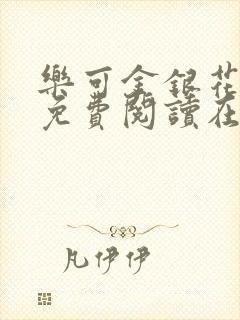 樂可金銀花
免費閱讀在
凡伊伊